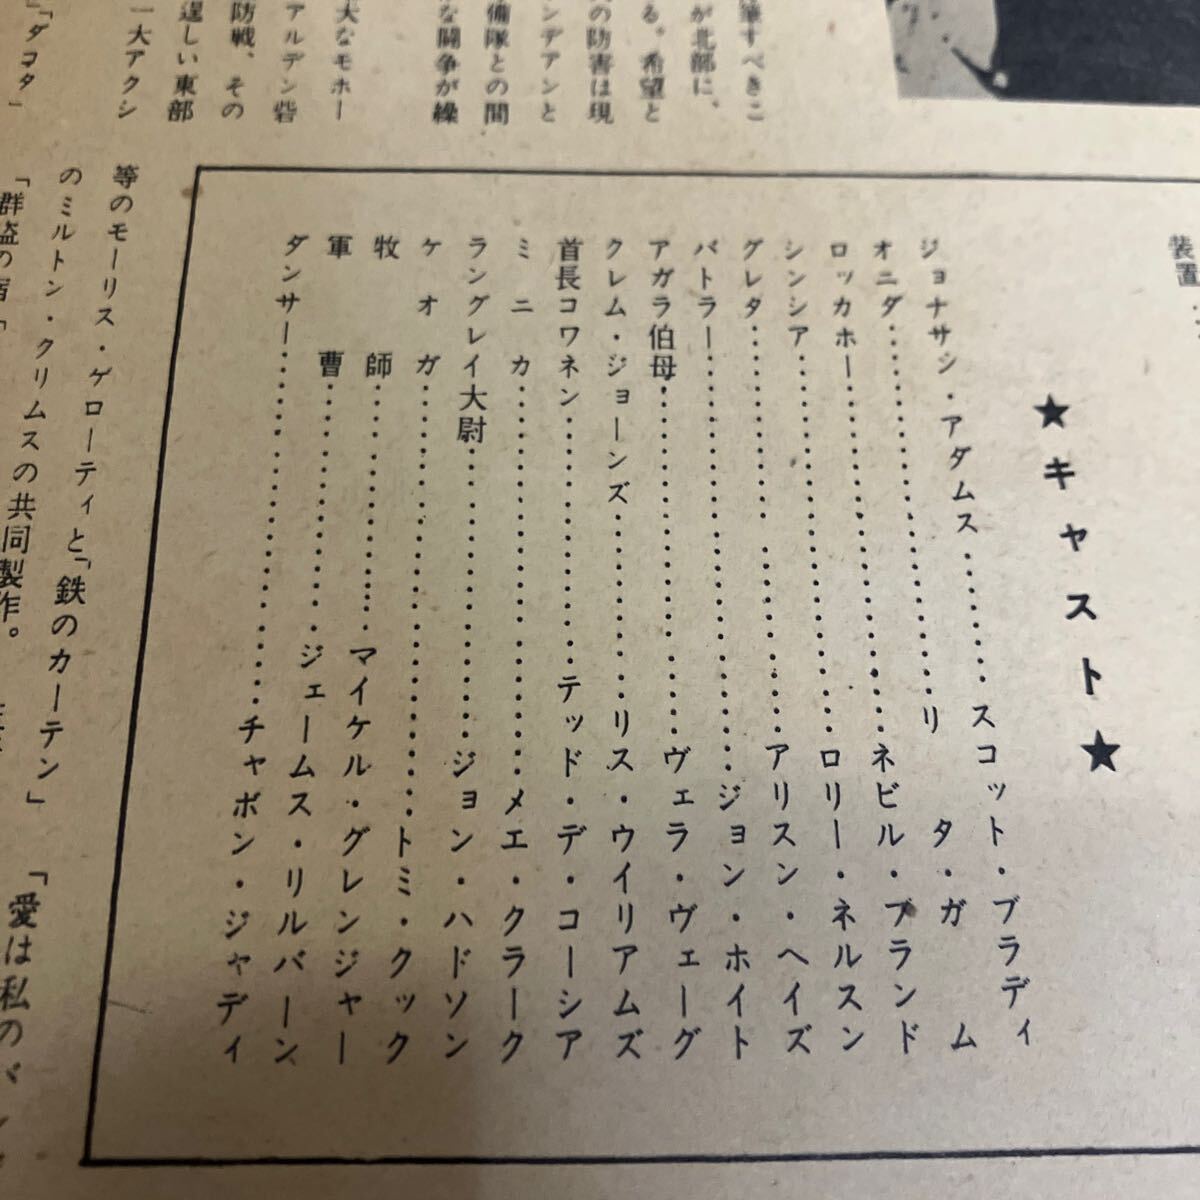 筆すべきこ
が北部に、
る。希望と
の防害は現
ンデアンと
備隊との間
な闘争が繰
大なモホー
アルデン砦
防戦、その
逞しい東部
一大アクシ
「ダコタ」
装置‥
★キャスト★
ジョナサン・アダムス………スコット・ブラディ
オニダ………………リタ・ガム
ロッカホー………………ネビル・ブランド
シンシア………………ロリー・ネルスン
グレタ………………アリスン・ヘイズ
バトラー………………ジョン・ホイト
アガラ伯母………………ヴェラ・ヴェーグ
クレム・ジョーンズ………………リス・ウイリアムズ
首長コワネン………………テッド・デ・コーシア
ミニカ………………メエ・クラーク
ラングレイ大尉………………ジョン・ハドソン
ケオガ………………トミ・クック
牧師………………マイケル・グレンジャー
軍曹………………ジェームス・リルバーン
ダンサー………………チャボン・ジャディ
等のモーリス・ゲローティと「鉄のカーテン」
のミルトン・クリムスの共同製作。
「愛は私の
「群盗の宿」